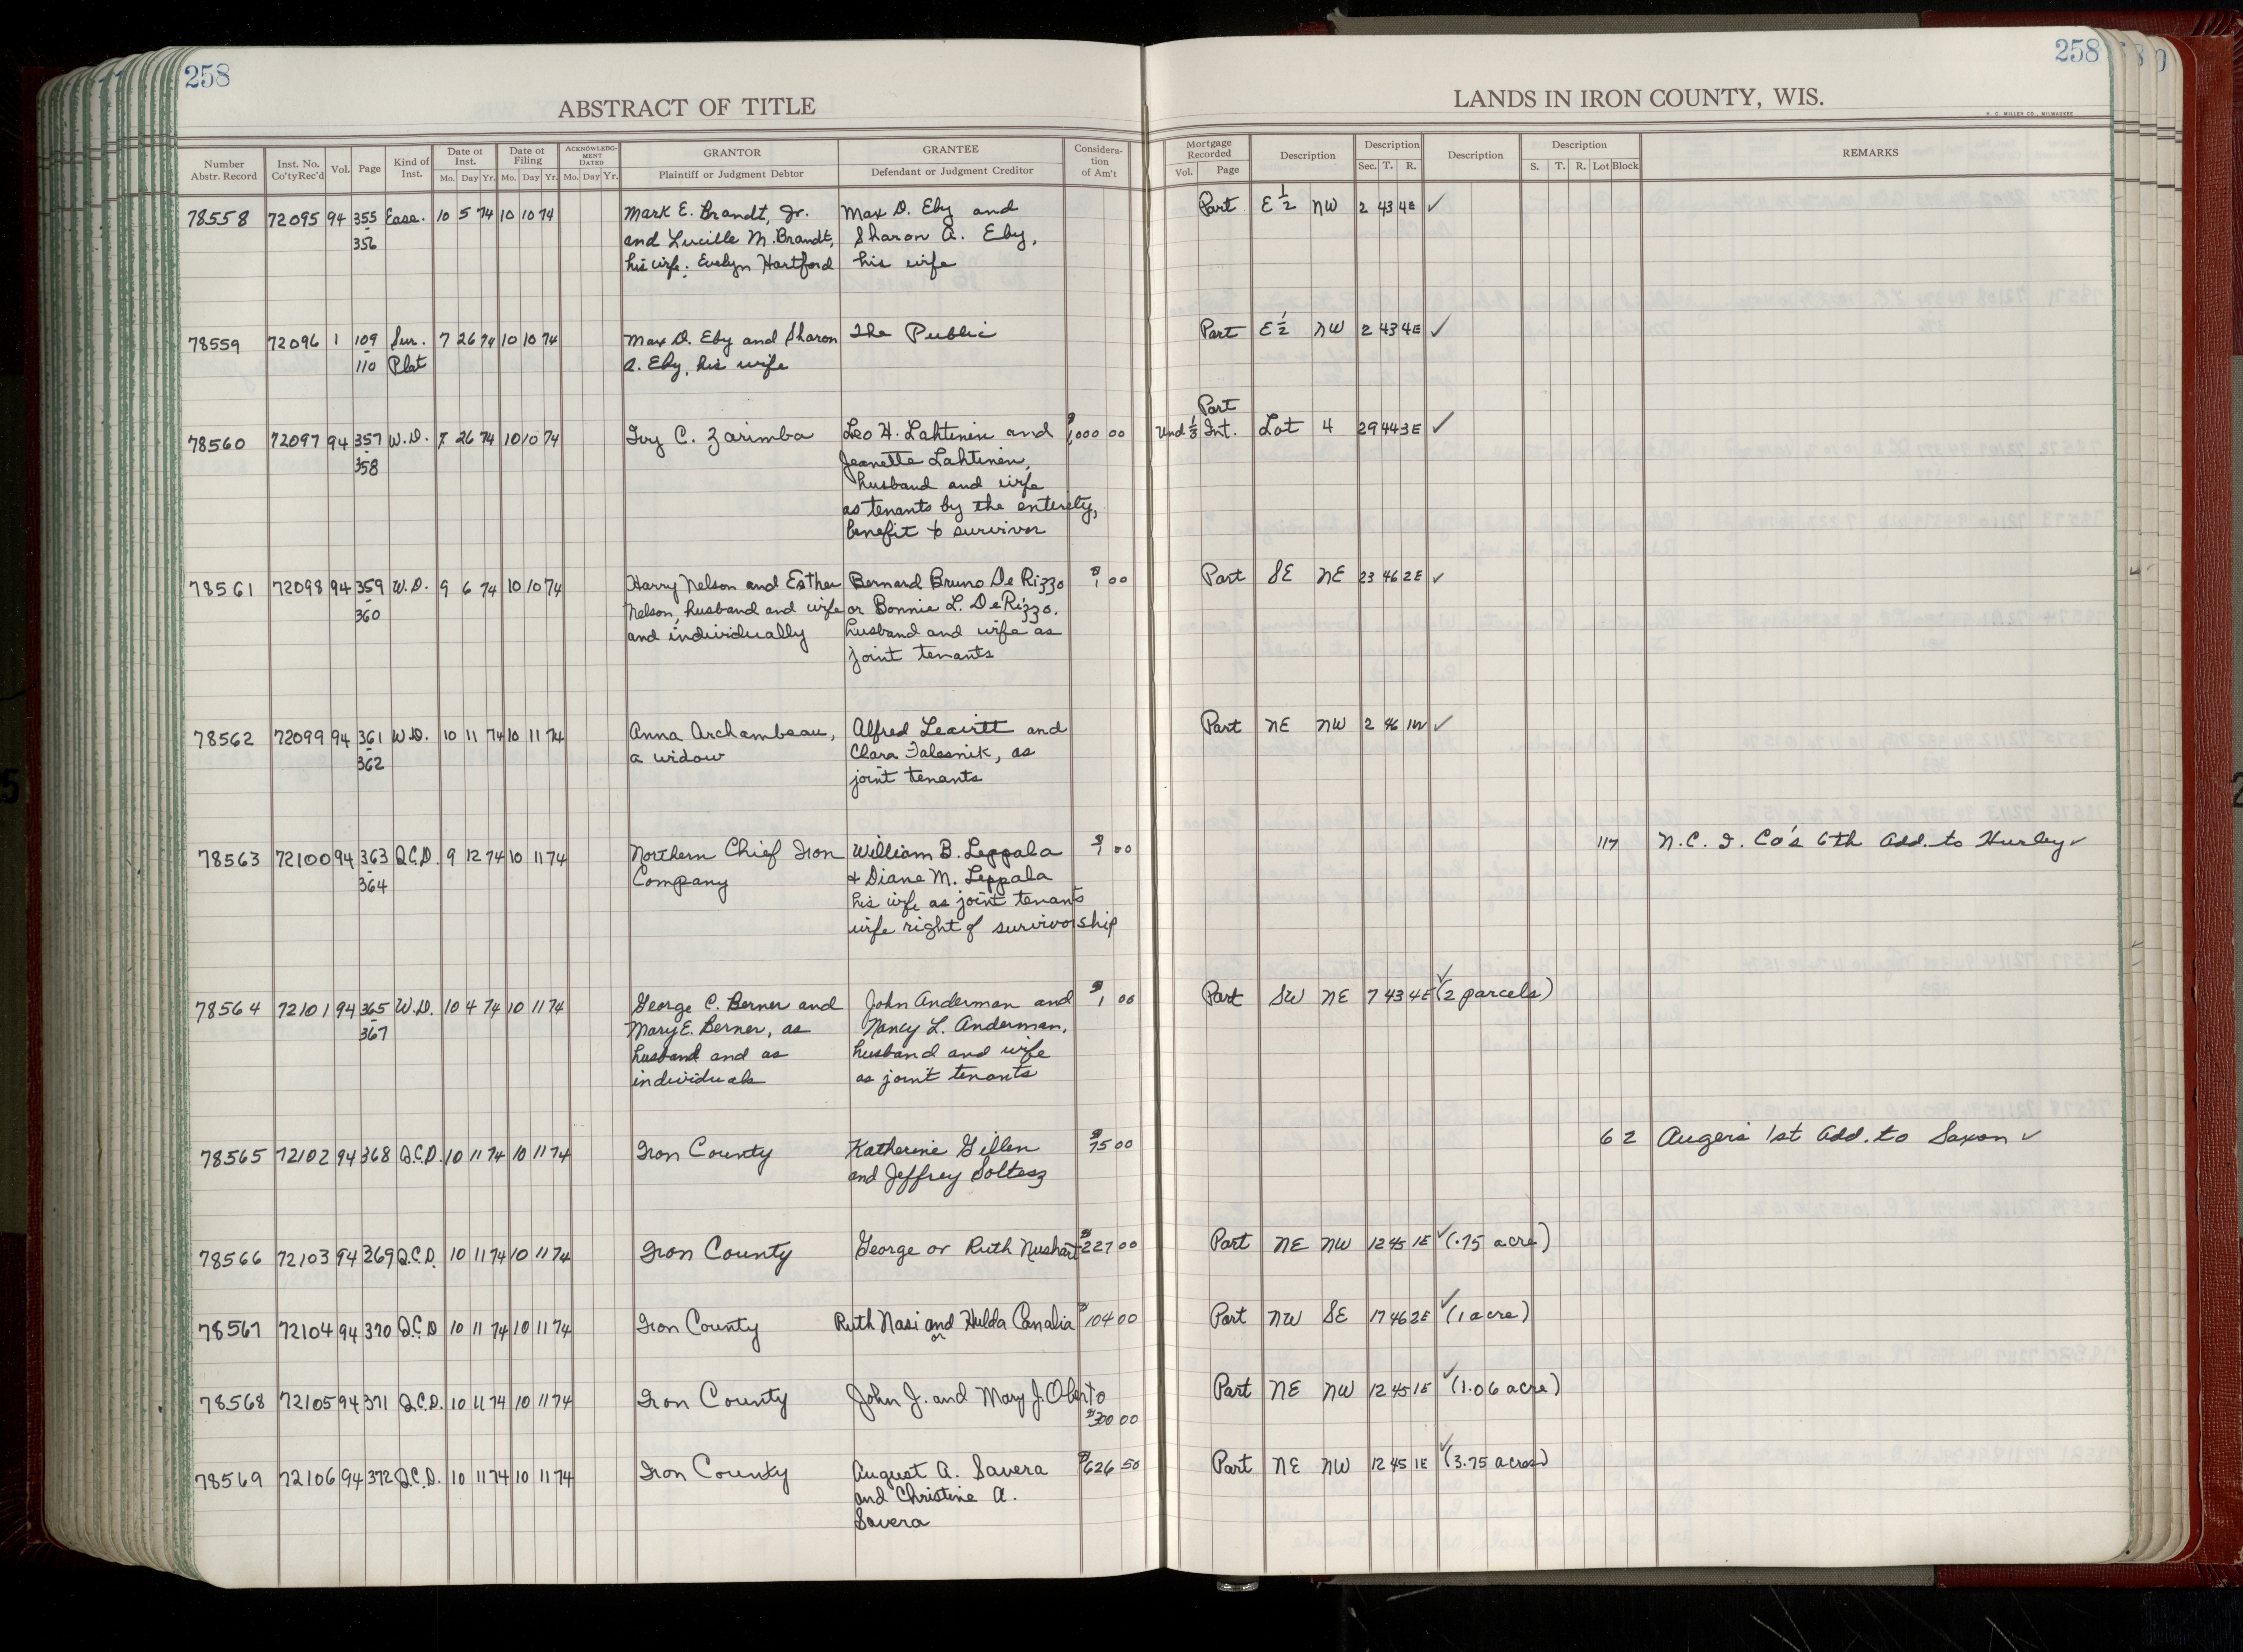 258
258
ABSTRACT OF TITLE
LANDS IN IRON COUNTY, WIS.
Number Abstr. Record Inst. No. Co'ty Rec'd Vol. Page Kind of Inst. Date of Inst. Mo. Day Yr. Date of Filing Mo. Day Yr. ACKNOWLEDGMENT DATED Mo. Day Yr. GRANTOR Plaintiff or Judgment Debtor GRANTEE Defendant or Judgment Creditor Consideration of Am't Mortgage Recorded Vol. Page Description Description Sec. T. R. Description Description S. T. R. Lot Block REMARKS
78558 72095 94 355 Ease. 10 5 74 10 10 74 Mark E. Brandt, Jr. Max D. Eby and Part E 1/2 NW 2 43 4E ✓
- 356 and Lucille M. Brandt, Sharon A. Eby,
his wife; Evelyn Hartford his wife
78559 72096 1 109 Sur. 7 26 74 10 10 74 Max D. Eby and Sharon The Public Part E 1/2 NW 2 43 4E ✓
- 110 Plat A. Eby, his wife
Part
78560 72097 94 357 W.D. 7 26 74 10 10 74 Ivy C. Zarimba Leo H. Lahtinen and $1,000 00 Und 1/3 Int. Lot 4 29 44 3E ✓
- 358 Jeanette Lahtinen,
husband and wife
as tenants by the entirety,
benefit to survivor
78561 72098 94 359 W.D. 9 6 74 10 10 74 Harry Nelson and Esther Bernard Bruno De Rizzo $1 00 Part SE NE 23 46 2E ✓
- 360 Nelson, husband and wife or Bonnie L. DeRizzo,
and individually husband and wife as
joint tenants
78562 72099 94 361 W.D. 10 11 74 10 11 74 Anna Archambeau, Alfred and Part NE NW 2 46 1W ✓
- 362 a widow Clara Talesnik, as
joint tenants
78563 72100 94 363 Q.C.D. 9 12 74 10 11 74 Northern Chief Iron William B. Leppala $1 00 117 N.C.I. Co's 6th Add. to Hurley ✓
- 364 Company + Diane M. Leppala
his wife as joint tenants
wife right of survivorship
78564 72101 94 365 W.D. 10 4 74 10 11 74 George C. Berner and John Anderman and $1 00 Part SW NE 7 43 4E ✓ (2 parcels)
- 367 Mary E. Berner, as Nancy L. Anderman,
husband and as husband and wife
individuals as joint tenants
78565 72102 94 368 Q.C.D. 10 11 74 10 11 74 Iron County Katherine Gillen $75 00 6 2 Augers 1st Add. to Saxon ✓
and Jeffrey Soltesz
78566 72103 94 369 Q.C.D. 10 11 74 10 11 74 Iron County George or Ruth $227 00 Part NE NW 12 45 1E ✓ (.75 acre)
78567 72104 94 370 Q.C.D 10 11 74 10 11 74 Iron County Ruth Nasi and Hulda Canalia $104 00 Part NW SE 17 46 2E ✓ (1 acre)
or
78568 72105 94 371 Q.C.D. 10 11 74 10 11 74 Iron County John J. and Mary J. Oberto Part NE NW 12 45 1E ✓ (1.06 acre)
$300 00
78569 72106 94 372 Q.C.D. 10 11 74 10 11 74 Iron County August A. Savera $626 50 Part NE NW 12 45 1E ✓ (3.75 acres)
and Christine A.
Savera